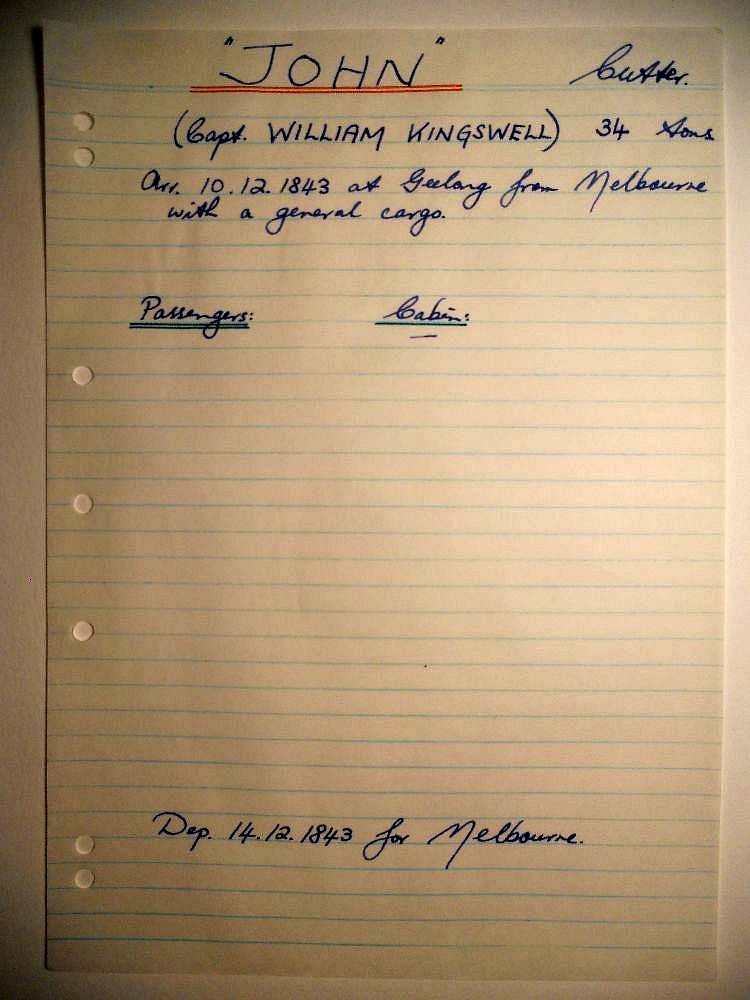 "JOHN" Cutter.
(Capt. WILLIAM KINGSWELL) 34 tons
Arr. 10.12.1843 at Geelong from Melbourne
with a general cargo.
Passengers: Cabin:
—
Dep. 14.12.1843 for Melbourne.